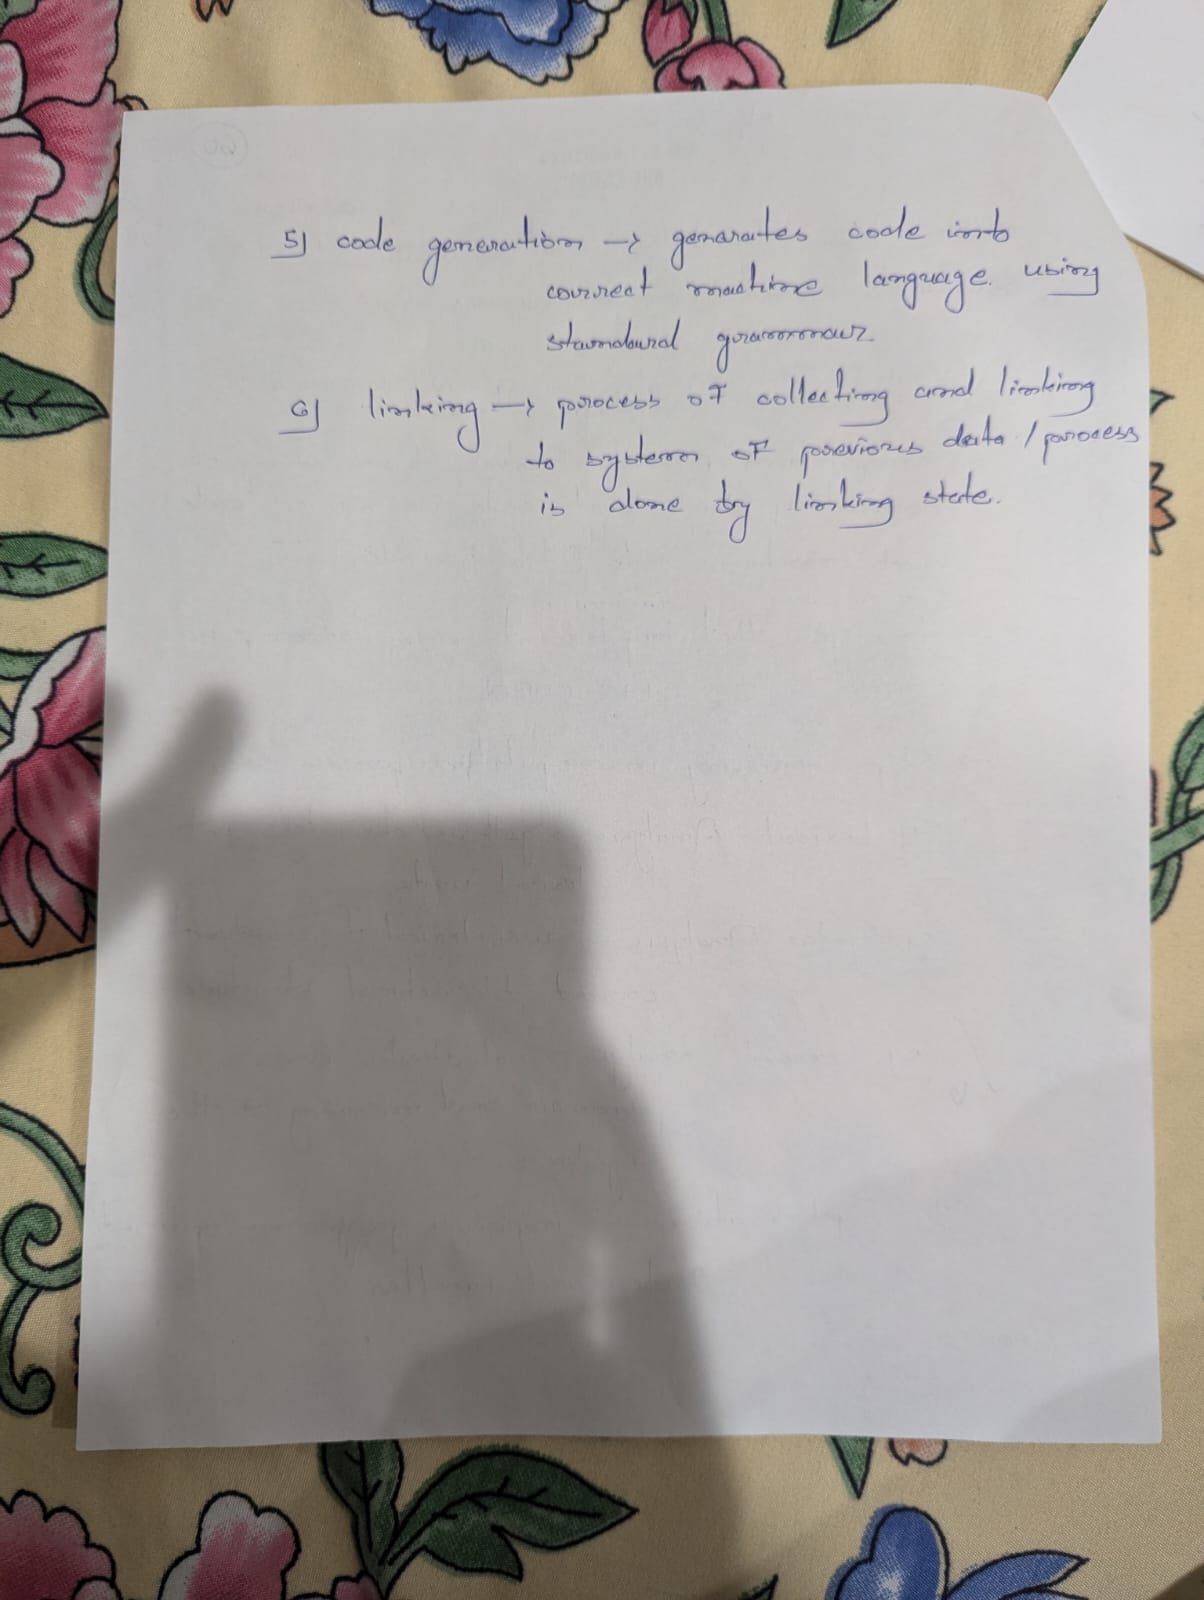 5) code generation → genarates code into
correct machine language. using
standard grammar
6) linking → process of collecting and linking
to system of previous data / process
is done by linking state.